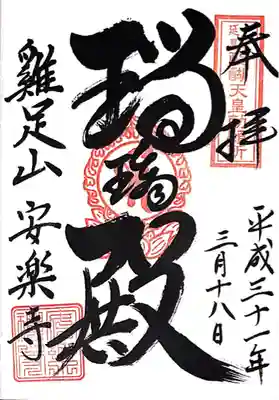 奉拝
平成三十一年
三月十八日
瑠璃殿
雞足山 安楽寺